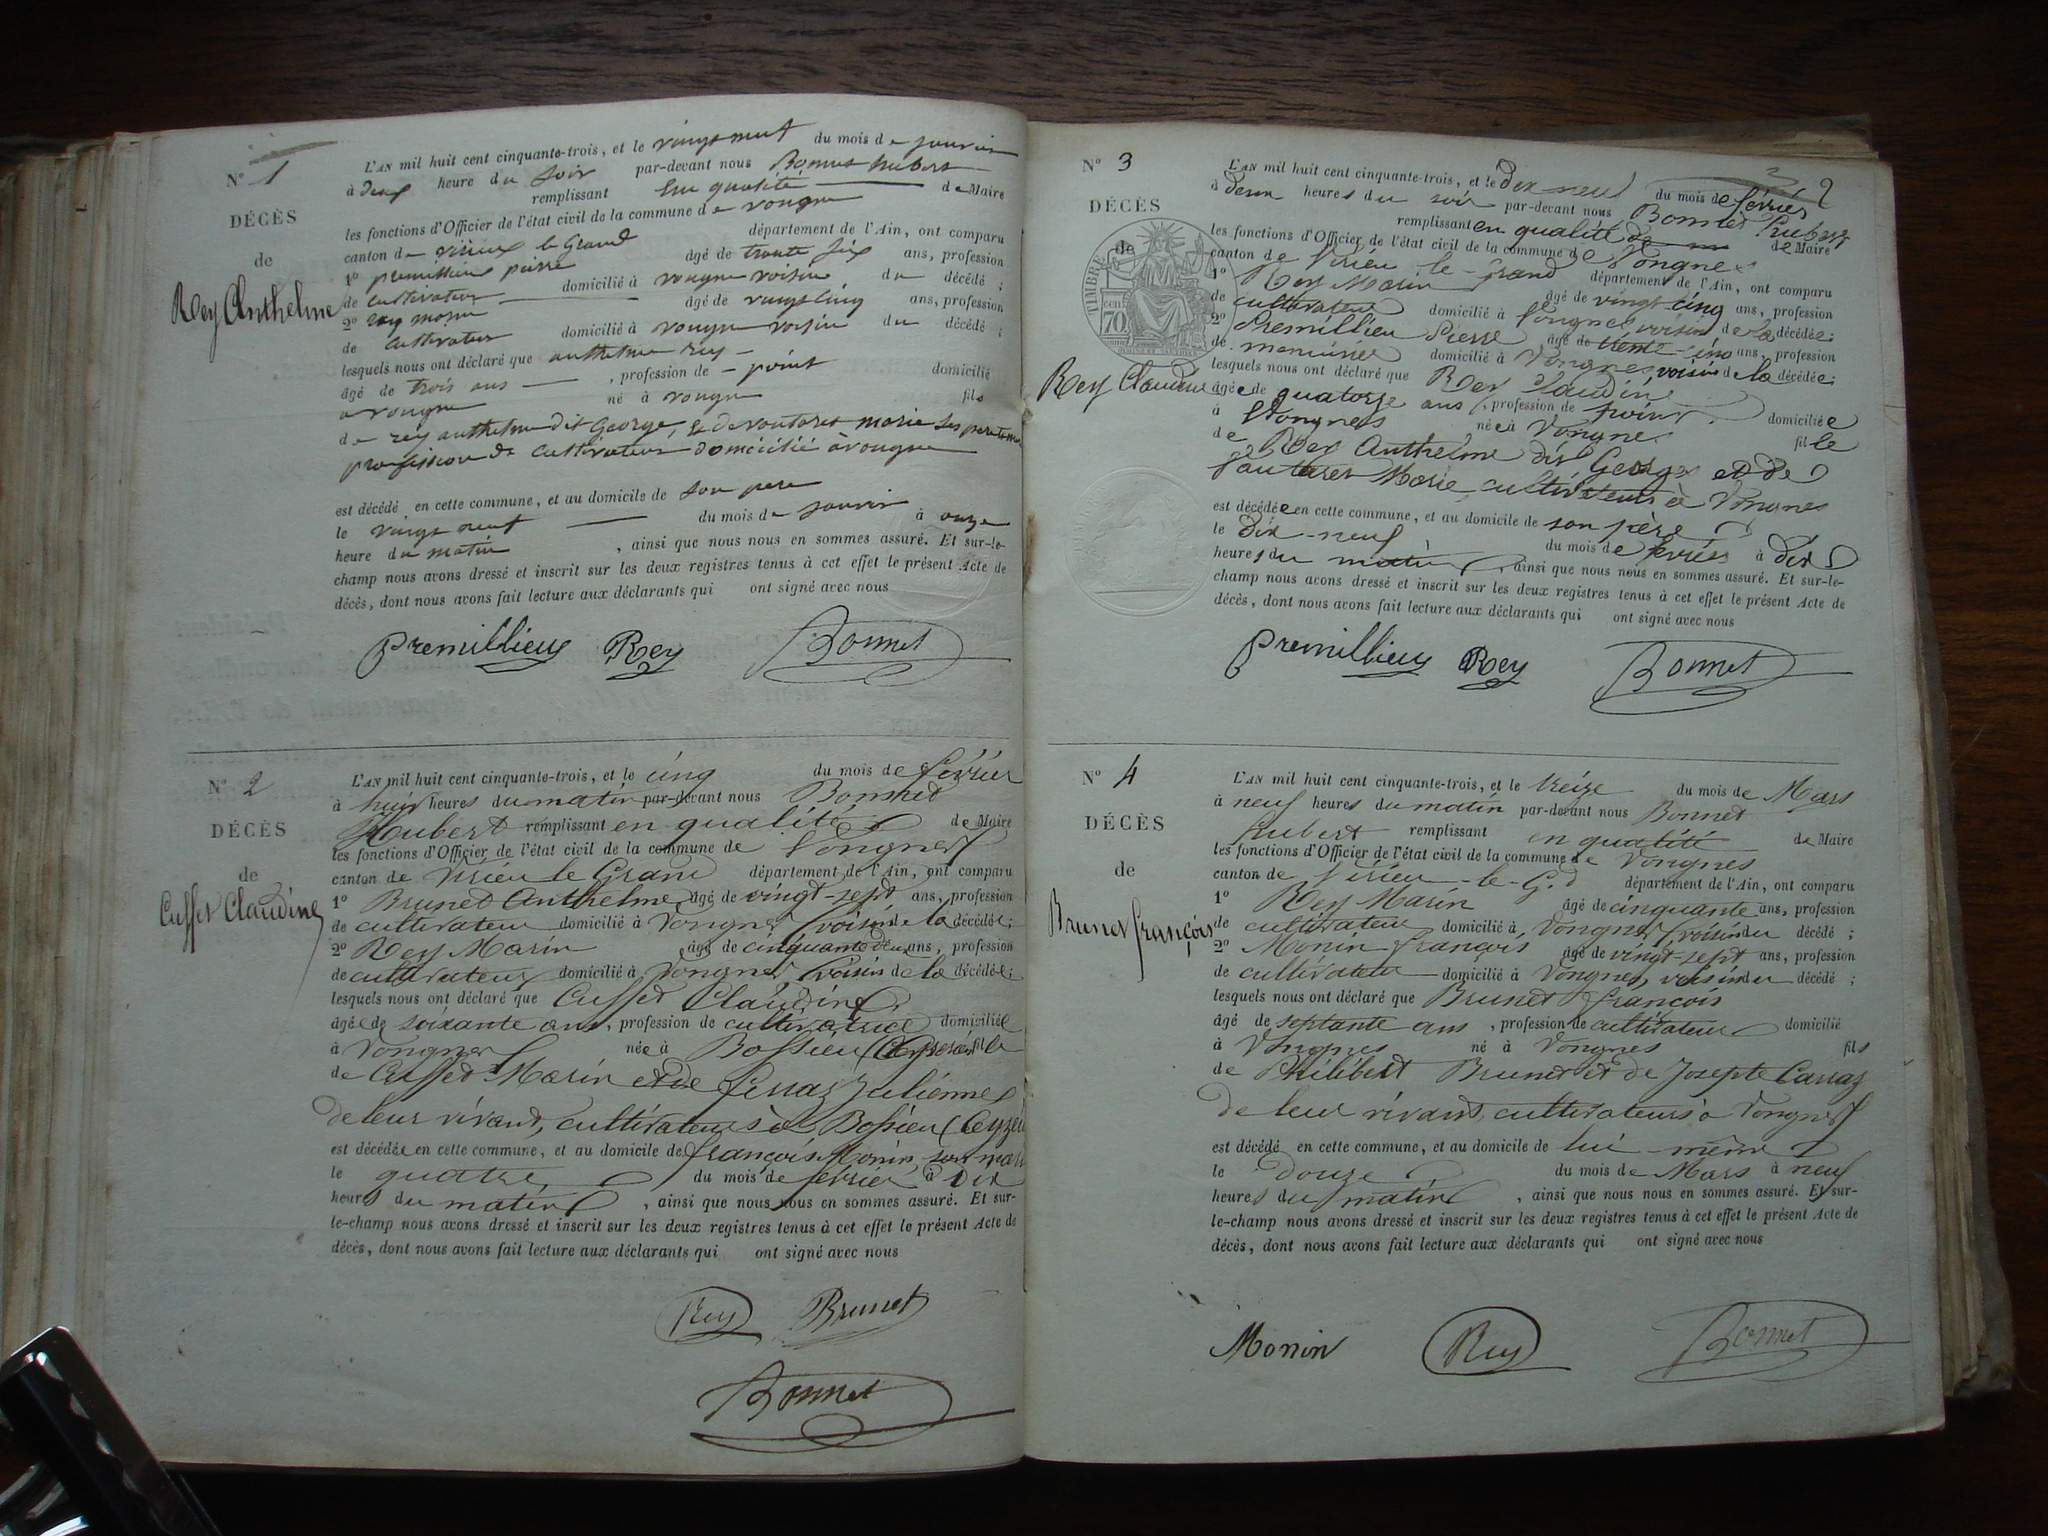 N° 1
DÉCÈS
de
Rey Anthelme
L'AN mil huit cent cinquante-trois, et le vingt neuf du mois de janvier
à deux heure du soir par-devant nous Bonnet hubert
remplissant en qualité de Maire
les fonctions d'Officier de l'état civil de la commune de vongne
canton de virieux le Grand département de l'Ain, ont comparu
1° premillieu pierre âgé de trente six ans, profession
de cultivateur domicilié à vongne voisin du décédé ;
2° rey marin âgé de vingt cinq ans, profession
de cultivateur domicilié à vongne voisin du décédé ;
lesquels nous ont déclaré que anthelme rey
âgé de trois ans , profession de point domicilié
a vongne né à vongne fils
de rey anthelme dit George, & de voutaret marie ses pere et mere
profission de cultivateur domicilié à vongne
est décédé en cette commune, et au domicile de son pere
le vingt neuf du mois de janvier à onze
heure du matin , ainsi que nous nous en sommes assuré. Et sur-le-
champ nous avons dressé et inscrit sur les deux registres tenus à cet effet le présent Acte de
décès, dont nous avons fait lecture aux déclarants qui ont signé avec nous
Premillieu Rey Bonnet
N° 2
DÉCÈS
de
Cusset Claudine
L'AN mil huit cent cinquante-trois, et le cinq du mois de février
à huit heures du matin par-devant nous Bonnet
Hubert remplissant en qualité de Maire
les fonctions d'Officier de l'état civil de la commune de Vongnes
canton de Virieu le Grand département de l'Ain, ont comparu
1° Brunet Anthelme âgé de vingt-sept ans, profession
de cultivateur domicilié à Vongnes voisin de la décédée ;
2° Rey Marin âgé de cinquante deux ans, profession
de cultivateur domicilié à Vongnes voisin de la décédée ;
lesquels nous ont déclaré que Cusset Claudine
âgée de soixante ans, profession de cultivatrice domiciliée
à Vongnes née à Bossieu (Ceyzérieu) fille
de Cusset Marin et de ferraz julienne
de leur vivant, cultivateurs à Bossieu (Ceyzérieu
est décédée en cette commune, et au domicile de françois Monin son mari
le quatre du mois de février à Dix
heures du matin , ainsi que nous nous en sommes assuré. Et sur-
le-champ nous avons dressé et inscrit sur les deux registres tenus à cet effet le présent Acte de
décès, dont nous avons fait lecture aux déclarants qui ont signé avec nous
Rey Brunet
Bonnet
2
N° 3
DÉCÈS
de
TIMBRE
70
Rey Claudine
L'AN mil huit cent cinquante-trois, et le dix neuf du mois de février
à deux heures du soir par-devant nous Bonnet hubert
remplissant en qualité de Maire
les fonctions d'Officier de l'état civil de la commune de Vongnes
canton de Virieu le-grand département de l'Ain, ont comparu
1° Rey Marin âgé de vingt cinq ans, profession
de cultivateur domicilié à Vongnes voisin de la décédée ;
2° Premillieu Pierre âgé de trente-cinq ans, profession
de menuisier domicilié à Vongnes voisin de la décédée ;
lesquels nous ont déclaré que Rey claudine
âgée de quatorze ans , profession de point domiciliée
à Vongnes née à Vongnes fille
de Rey Anthelme dit George et de
Vautaret Marie, cultivateurs à Vongnes
est décédée en cette commune, et au domicile de son père
le dix-neuf du mois de février à dix
heures du matin , ainsi que nous nous en sommes assuré. Et sur-le-
champ nous avons dressé et inscrit sur les deux registres tenus à cet effet le présent Acte de
décès, dont nous avons fait lecture aux déclarants qui ont signé avec nous
Premillieu Rey Bonnet
N° 4
DÉCÈS
de
Brunet françois
L'AN mil huit cent cinquante-trois, et le treize du mois de Mars
à neuf heures du matin par-devant nous Bonnet
hubert remplissant en qualité de Maire
les fonctions d'Officier de l'état civil de la commune de Vongnes
canton de Virieu-le-G.d département de l'Ain, ont comparu
1° Rey Marin âgé de cinquante ans, profession
de cultivateur domicilié à Vongnes voisin du décédé ;
2° Monin françois âgé de vingt-sept ans, profession
de cultivateur domicilié à Vongnes, voisin du décédé ;
lesquels nous ont déclaré que Brunet françois
âgé de septante ans , profession de cultivateur domicilié
à Vongnes né à Vongnes fils
de Philibert Brunet et de Josepte Carraz
de leur vivant, cultivateurs à Vongnes
est décédé en cette commune, et au domicile de lui-même
le douze du mois de Mars à neuf
heures du matin , ainsi que nous nous en sommes assuré. Et sur-
le-champ nous avons dressé et inscrit sur les deux registres tenus à cet effet le présent Acte de
décès, dont nous avons fait lecture aux déclarants qui ont signé avec nous
Monin Rey Bonnet